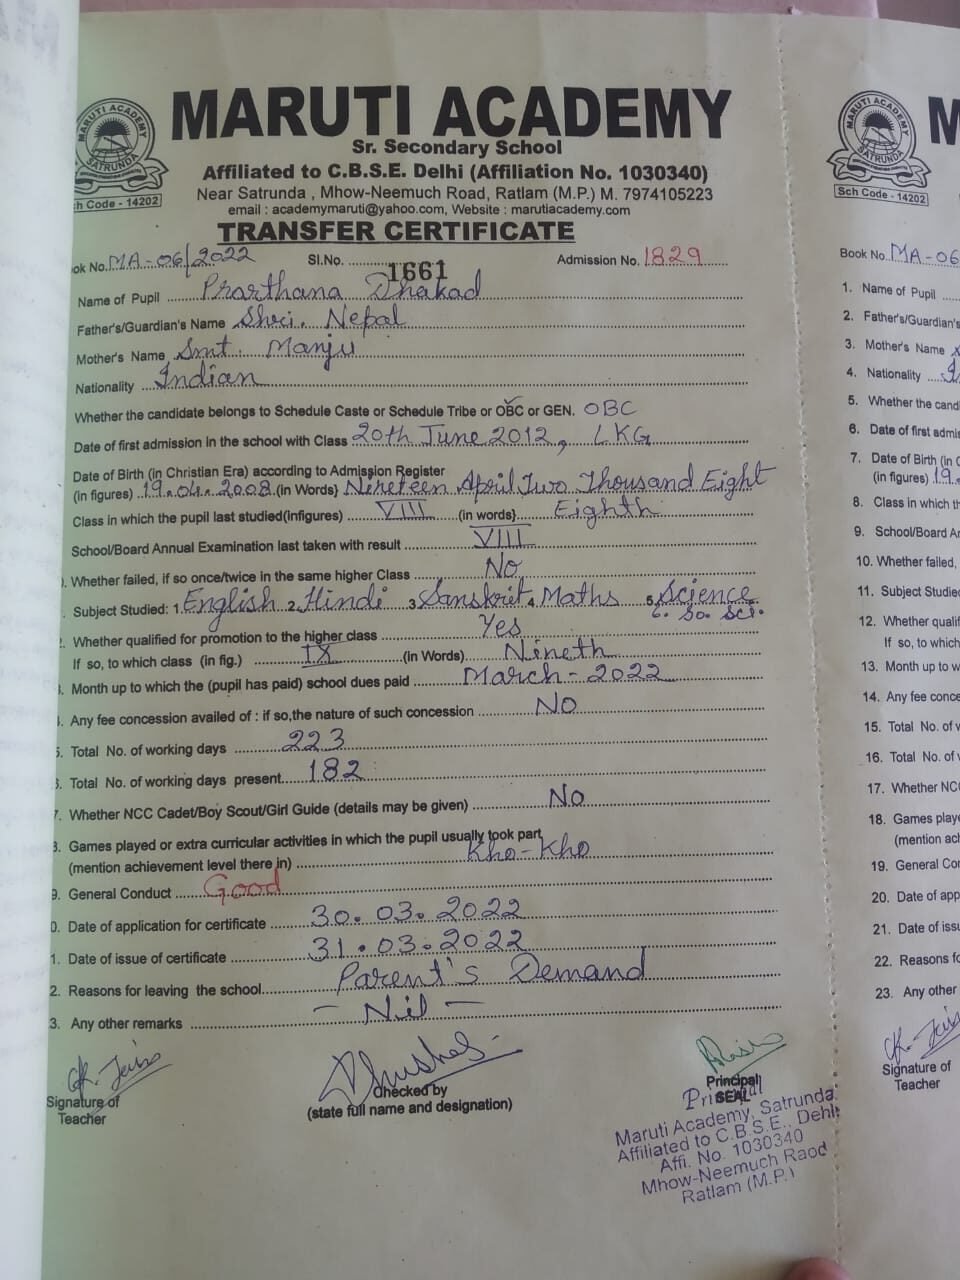 MARUTI ACADEMY
SATRUNDA
ch Code - 14202
MARUTI ACADEMY
Sr. Secondary School
Affiliated to C.B.S.E. Delhi (Affiliation No. 1030340)
Near Satrunda , Mhow-Neemuch Road, Ratlam (M.P.) M. 7974105223
email : academymaruti@yahoo.com, Website : marutiacademy.com
TRANSFER CERTIFICATE
ok No. MA-06/2022 Sl.No. 1661 Admission No. 1829
Name of Pupil Prarthana Dhakad
Father's/Guardian's Name Shri. Nepal
Mother's Name Smt. Manju
Nationality Indian
Whether the candidate belongs to Schedule Caste or Schedule Tribe or OBC or GEN. OBC
Date of first admission in the school with Class 20th June 2012, LKG
Date of Birth (in Christian Era) according to Admission Register
(in figures) 19.04.2008 (in Words) Nineteen April Two Thousand Eight
Class in which the pupil last studied(infigures) VIII (in words} Eighth
School/Board Annual Examination last taken with result VIII
). Whether failed, if so once/twice in the same higher Class No
. Subject Studied: 1. English 2. Hindi 3. Sanskrit 4. Maths 5. Science
6. So. Sci.
2. Whether qualified for promotion to the higher class Yes
If so, to which class (in fig.) IX (in Words) Nineth
3. Month up to which the (pupil has paid) school dues paid March-2022
4. Any fee concession availed of : if so,the nature of such concession No
5. Total No. of working days 223
6. Total No. of working days present 182
7. Whether NCC Cadet/Boy Scout/Girl Guide (details may be given) No
8. Games played or extra curricular activities in which the pupil usually took part
(mention achievement level there in) Kho-Kho
9. General Conduct Good
0. Date of application for certificate 30.03.2022
1. Date of issue of certificate 31.03.2022
2. Reasons for leaving the school Parent's Demand
3. Any other remarks - Nil -
Signature of
Teacher
Checked by
(state full name and designation)
Principal
SEAL
Principal
Maruti Academy, Satrunda
Affiliated to C.B.S.E., Delhi
Affi. No. 1030340
Mhow-Neemuch Raod
Ratlam (M.P.)
MARUTI ACADEMY
SATRUNDA
Sch Code - 14202
M
Book No. MA-06
1. Name of Pupil
2. Father's/Guardian's
3. Mother's Name
4. Nationality
5. Whether the cand
6. Date of first admis
7. Date of Birth (in C
(in figures) 19.
8. Class in which th
9. School/Board An
10. Whether failed,
11. Subject Studied
12. Whether qualif
If so, to which
13. Month up to w
14. Any fee conce
15. Total No. of w
16. Total No. of w
17. Whether NCC
18. Games playe
(mention ach
19. General Con
20. Date of app
21. Date of issu
22. Reasons fo
23. Any other
Signature of
Teacher